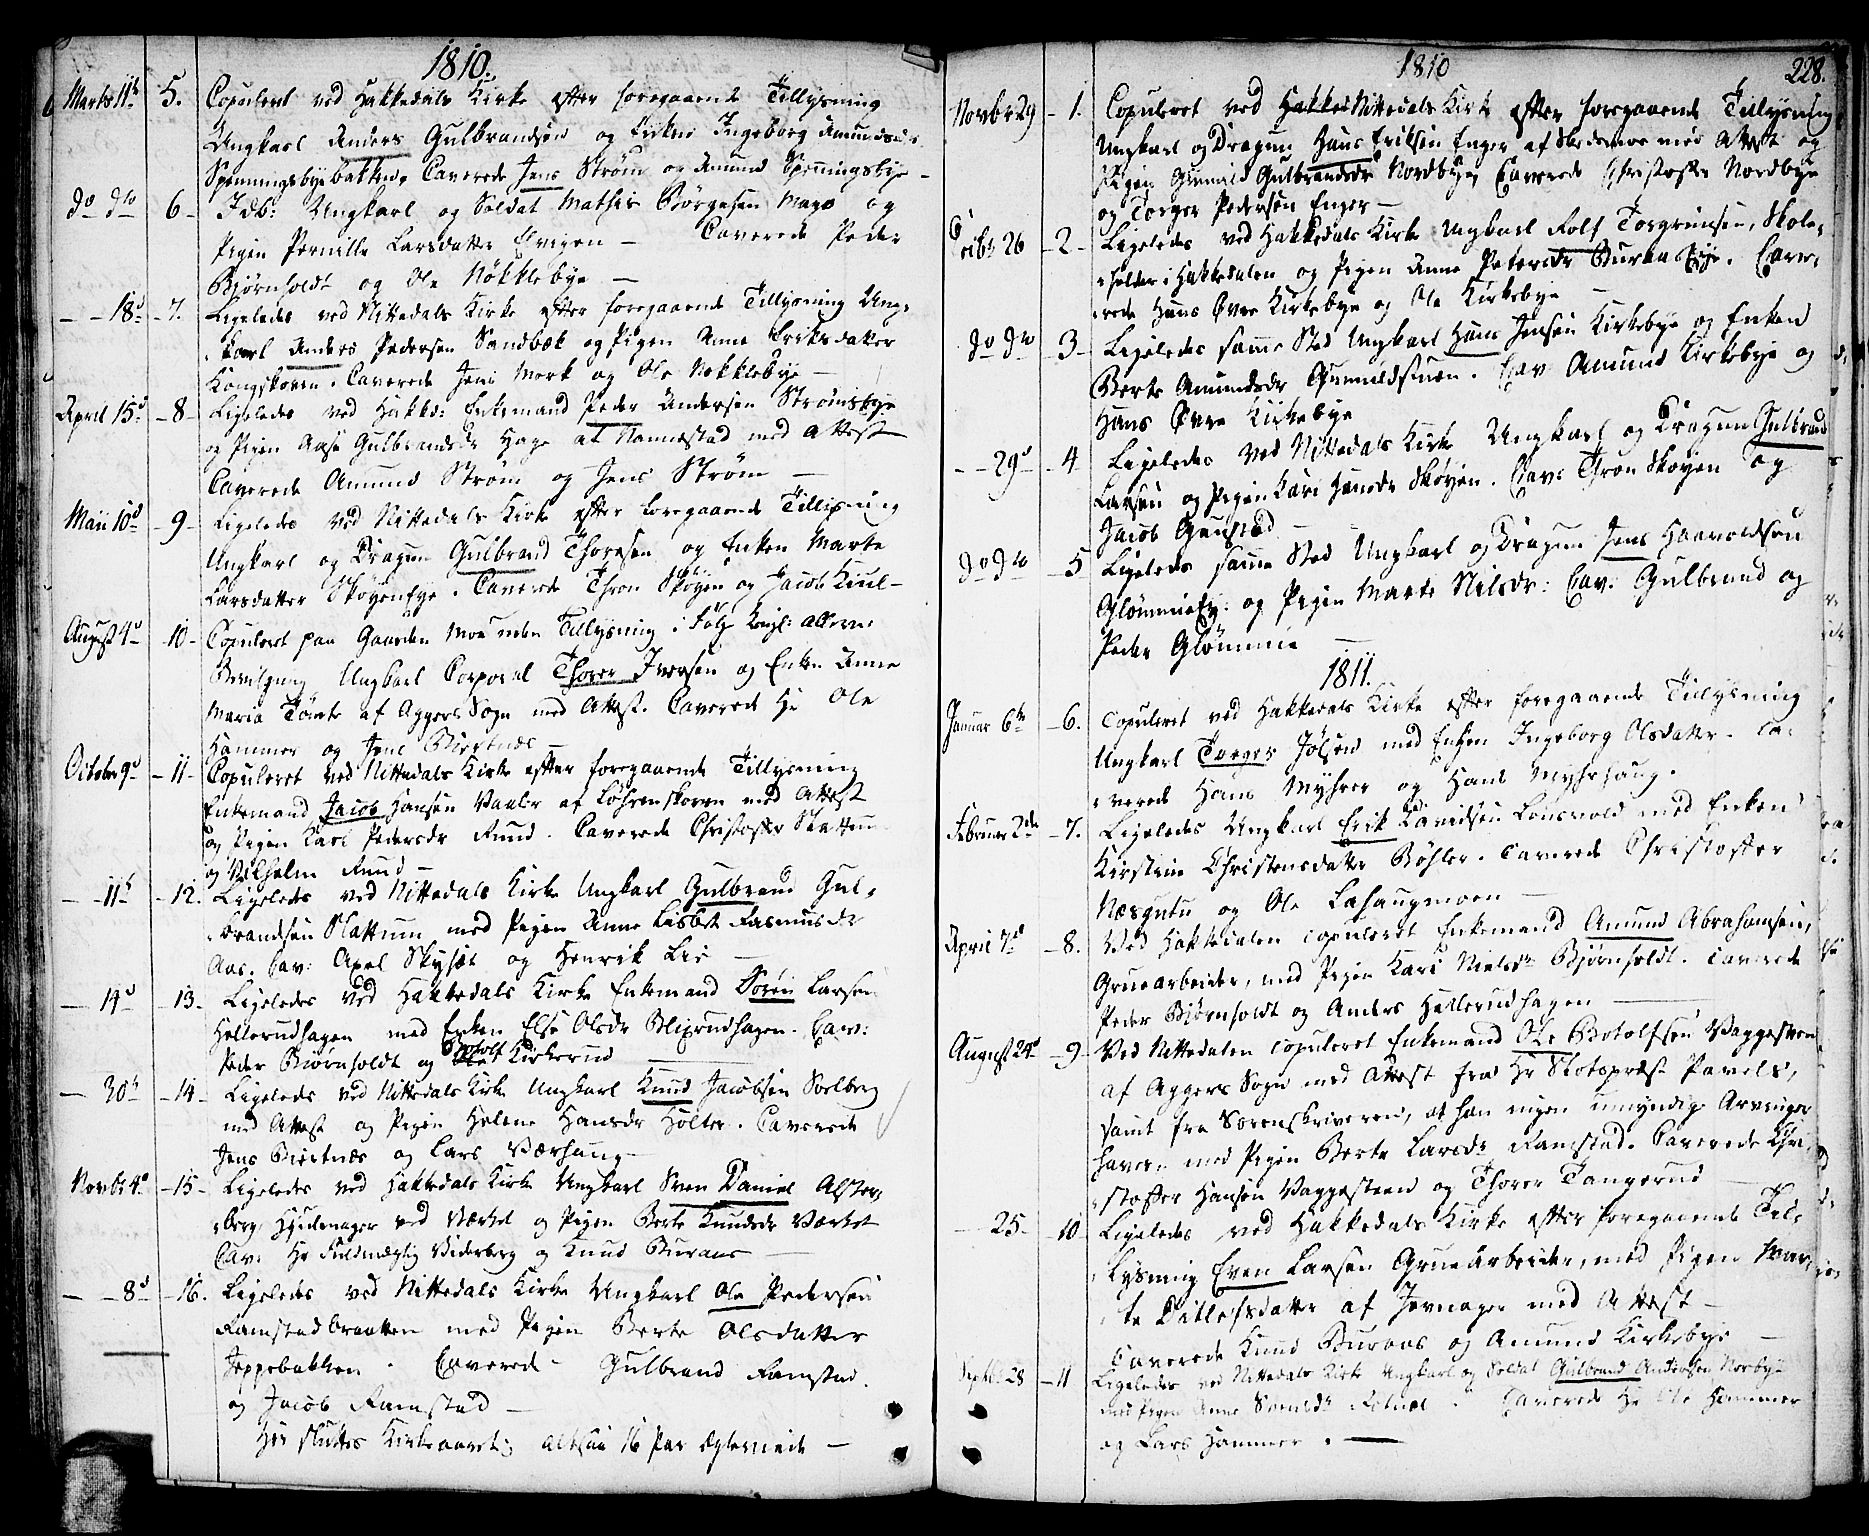 1810.
Marts 11te 5. Copuleret ved Hakkedals Kirke efter foregaaende Tillysning
Ungkarl Anders Gulbrandsen og Enken Ingeborg Amundsdr
Spenningsbyebakken, Caverede Jens Strøm og Amund Spenningsbye –
do do 6 – Idb: Ungkarl og Soldat Mathis Børgesen Mago og
Pigen Pernille Larsdatter – Caverede Peder
Bjørnholdt og Ole Nøkklebye –
– – 18d – 7. Ligeledes ved Nittedals Kirke efter foregaaende Tillysning Ung-
karl Anders Pedersen Sandbæk og Pigen Anne Eriksdatter
Kongskoven. Caverede Jens Mork og Ole Nøkklebye –
April 15d – 8 – Ligeledes ved Hakkd: Enkemand Peder Andersen Strømsbye
og Pigen Aase Gulbrandsdr Hage af Nannestad med Attest
Caverede Amund Strøm og Jens Strøm –
Maii 10d – 9 – Ligeledes ved Nittedals Kirke efter foregaaende Tillysning
Ungkarl og Dragun Gulbrand Thoresen og Enken Marte
Larsdatter SkøyenEye. Caverede Thron Skøyen og Jacob Kiul –
August 4d – 10 – Copuleret paa Gaarden Moe uden Tillysning i Følg Kongl: allern:
Bevilgning Ungkarl Corporal Thorer Iversen og Enken Anne
Maria Tømte af Aggers Sogn med Attest. Caverede Hr Ole
Hammer og Jens Biertnæs –
October 9d – 11 – Copuleret ved Nittedals Kirke efter foregaaende Tillysning
Enkemand Jacob Hansen Vaaler af Løhrenskoven med Attest
og Pigen Kari Pedersdr Ruud. Caverede Christoffer Slattum
og Vilhelm Ruud –
– – 11te – 12. Ligeledes ved Nittedals Kirke Ungkarl Gulbrand Gul-
brandsen Slattum med Pigen Anne Lisbet Rasmusdr
Aas. Cav: Axel Skyset og Henrik Lie –
– 14d – 13 – Ligeledes ved Hakkedals Kirke Enkemand Søren Larsen
Hellerudhagen med Enken Else Olsdr Blixrudhagen. Cav:
Peder Biørnholdt og Botolf Kirkerud
– 30te – 14 – Ligeledes ved Nittedals Kirke Ungkarl Knud Jacobsen Soelberg
med Attest og Pigen Helene Hansdr Holter. Caverede
Jens Biertnæs og Lars Værhaug –
Novbr 4d – 15 – Ligeledes ved Hakkedals Kirke Ungkarl Sven Daniel Alster-
berg Hiulmager ved Værket og Pigen Berte Knudsdr Værket
Cav: Hr Fuldmægtig Widerberg og Knud Buraas –
– – 8d – 16. Ligeledes ved Nittedals Kirke Ungkarl Ole Pedersen
Ramstadbraaten med Pigen Berte Olsdatter
Jeppebakken. Caverede – Gulbrand Ramstad
og Jacob Ramstad –
Her sluttes Kirkeaaret; altsaa 16 Par Egteviede –
1810 228.
Novbr 29 – 1. Copuleret ved Nittedals Kirke efter foregaaende Tillysning
Ungkarl og Dragun Hans Erichsen Enger af Skedsmoe med Attest og
Pigen Gunnild Gulbrandsdr Nordbye, Caverede Christoffer Nordbye
og Torger Pedersen Enger –
Decbr 26 – 2 – Ligeledes ved Hakkedals Kirke Ungkarl Rolf Torgrimsen, Skole-
holder i Hakkedalen og Pigen Anne Petersdr Buraas Eye. Cave-
rede Hans Øvre Kirkebye og Ole Kirkebye –
do do – 3 – Ligeledes samme Sted Ungkarl Hans Jensen Kirkebye og Enken
Berte Amundsdr Gunnildstuen. Cav Amund Kirkebye og
Hans Øvre Kirkebye
– – 29d – 4 Ligeledes ved Nittedals Kirke Ungkarl og Dragun Gulbrand
Larsen og Pigen Kari Hansdr Skøyen. Cav: Thron Skøyen og
Jacob Gaustad –
do do – 5 Ligeledes samme Sted Ungkarl og Dragun Jens Haavoldsen
GlømmieEy: og Pigen Marte Nilsdr: Cav: Gulbrand og
Peder Glømmie –
1811.
Januar 6te – 6. Copuleret ved Hakkedals Kirke efter foregaaende Tillysning
Ungkarl Torger Jølsen med Enken Ingeborg Olsdatter. Ca-
verede Hans Myhrer og Hans Myhrhaug.
Februar 2den – 7. Ligeledes Ungkarl Erik Davidsen med Enken
Kirstine Christensdatter Bøhler. Caverede Christoffer
Næsgutu og Ole Lahaugmoen –
April 7d – 8. Ved Hakkedalen copuleret Enkemand Amund Abrahamsen,
Gruearbeider, med Pigen Kari Nielsdr Bjørnholdt. Caverede
Peder Biørnholdt og Anders Hellerudhagen –
August 24d – 9 – Ved Nittedalen copuleret Enkemand Ole Botolfsen Vaggesteen
af Aggers Sogn med Attest fra Hr Slotspræst Pavels,
samt fra Sorenskriveren, at han ingen umyndige Arvinger
haver, med Pigen Berte Larsdr Ramstad. Caverede Chri-
stoffer Hansen Vaggesteen og Thorer Tangerud –
– 25. – 10 – Ligeledes ved Hakkedals Kirke efter foregaaende Til-
lysning Even Larsen Gruearbeider, med Pigen Mar-
te Ditlefsdatter af Jevnager med Attest –
Caverede Knud Buraas og Amund Kirkebye –
Septbr 28 – 11 Ligeledes ved Nittedals Kirke Ungkarl og Soldat Gulbrand Andersen Norbye
med Pigen Anne Svendsdr Rotnæs. Caverede Hr Ole Hammer
og Lars Hammer. –